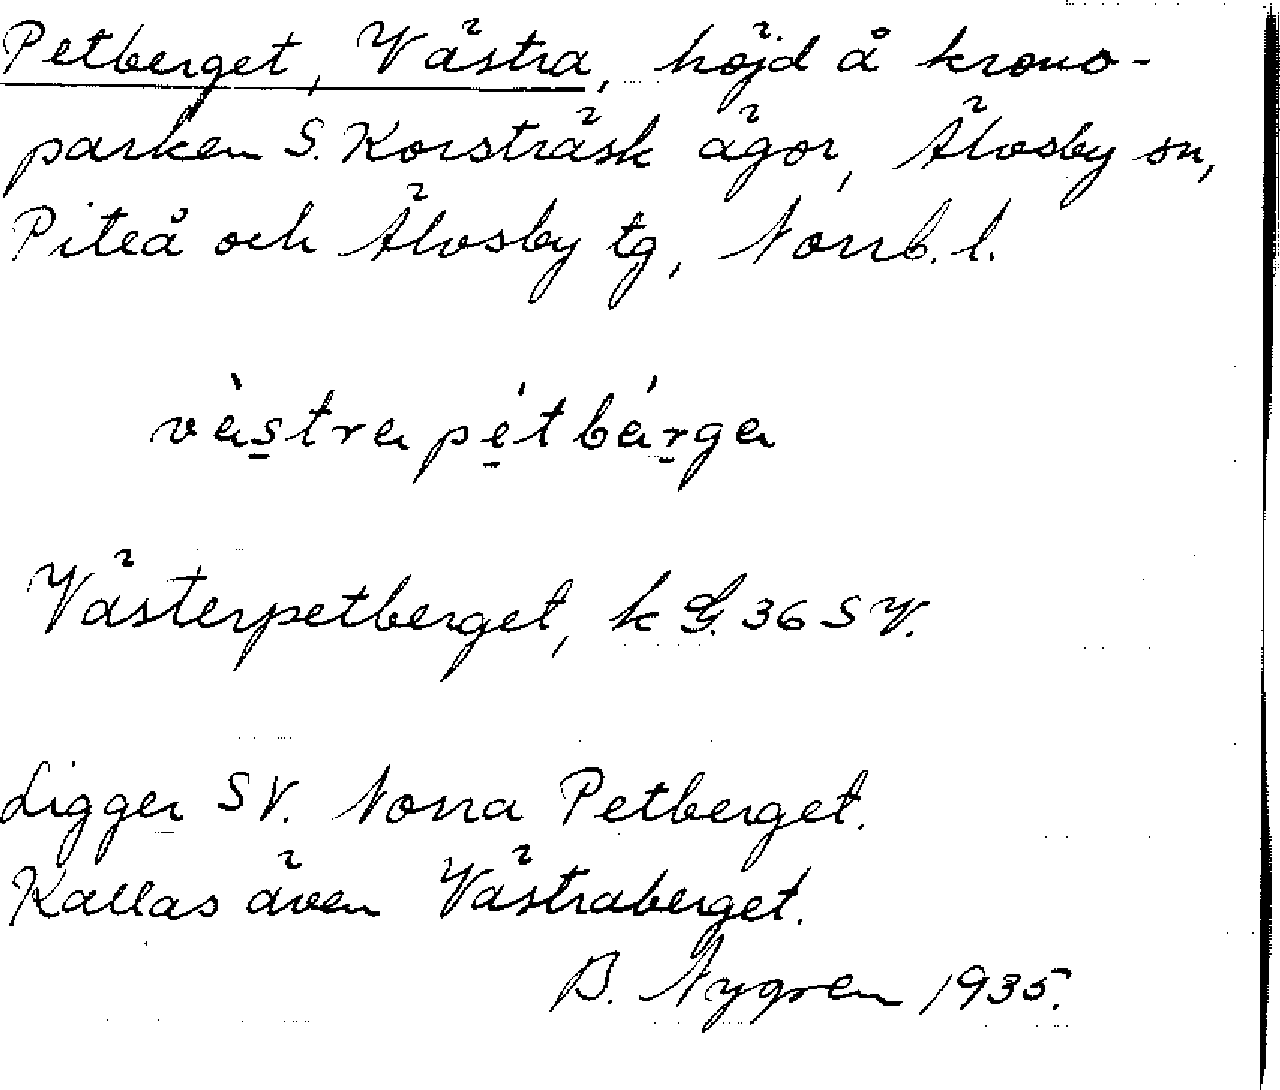 Petberget, Västra, höjd å krono-
parken S. Korsträsk ägor, Älvsby sn,
Piteå och Älvsby tg, Norrb. l.
vàstra pé̱tbárga
Västerpetberget, k G. 36 SV.
Ligger SV. Norra Petberget.
Kallas även Västraberget.
B. Nygren 1935.